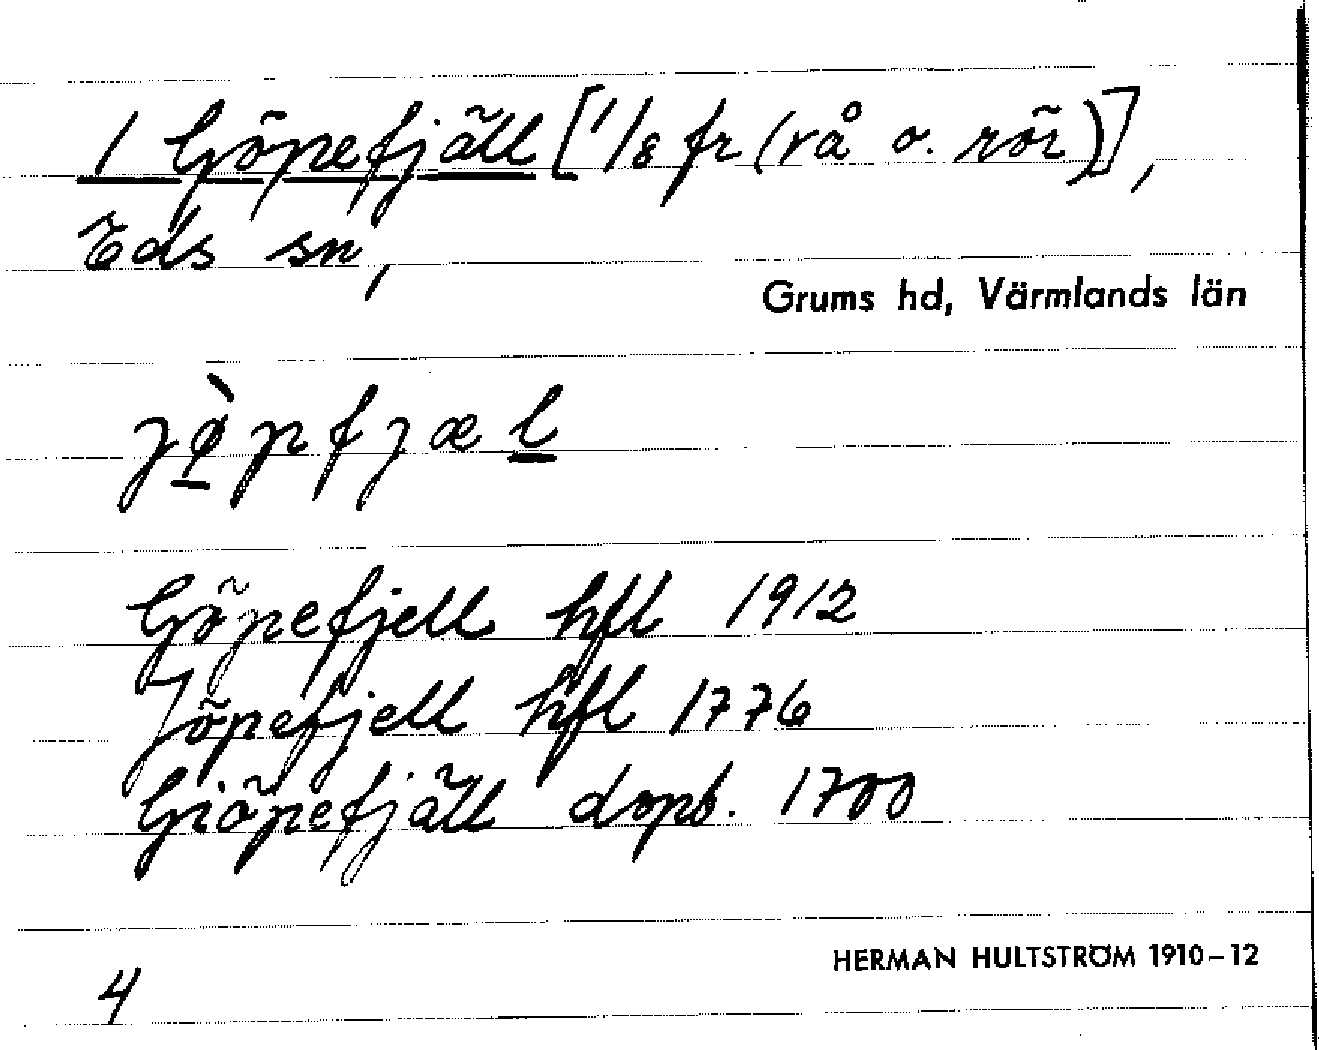 1 Göpefjäll [1/8 fr (rå o. rör)],
Eds sn,
Grums hd, Värmlands län
jø̀pfjæl
Göpefjell hfl 1912
Jöpefjell hfl 1776
Giöpefjäll dopb. 1700
HERMAN HULTSTRÖM 1910–12
4